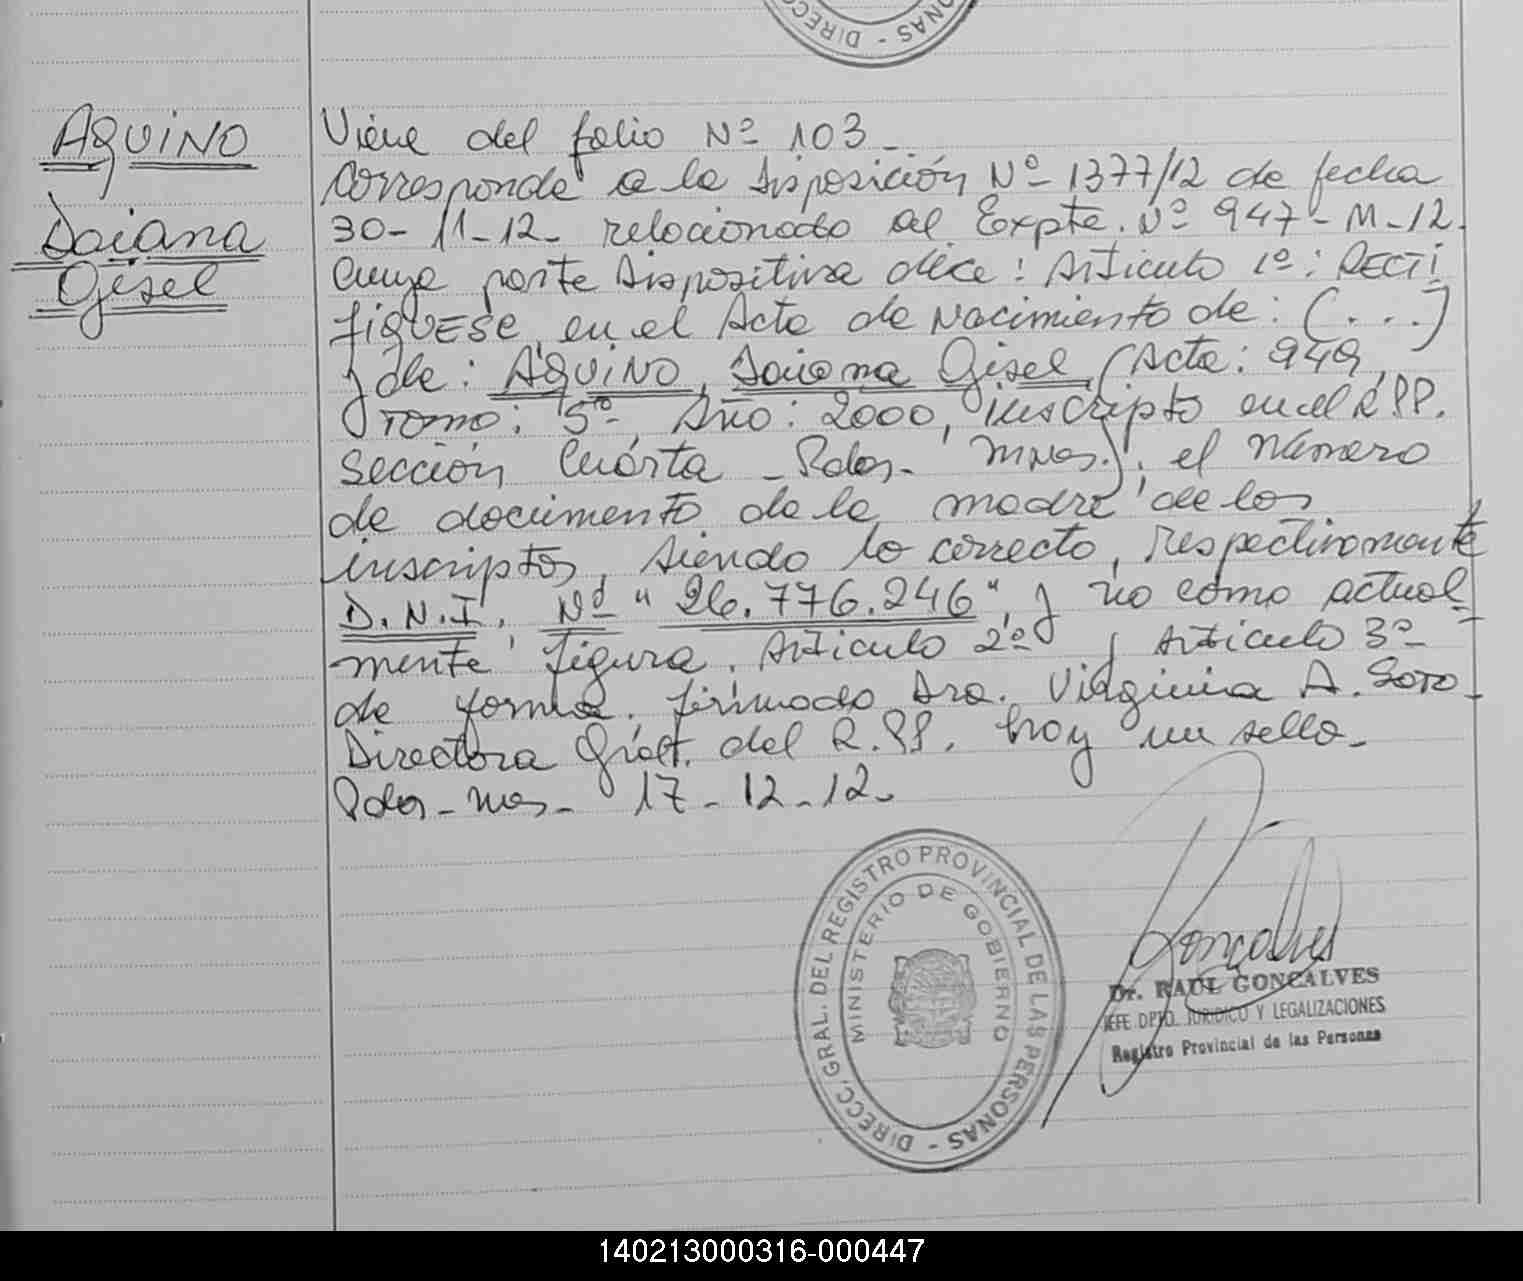 ONAS - DIRECC
AQUINO
Daiana
Gisel
Viene del folio Nº 103.-
Corresponde a la Disposición Nº 1377/12 de fecha
30-11-12- relacionado al Expte. Nº 947-M-12.
Cuya parte Dispositiva dice: Artículo 1º: RECTI
FIQUESE, en el Acta de Nacimiento de: (...)
y de: AQUINO, Daiana Gisel (Acta: 949,
Tomo: 5to, Año: 2000, inscripto en el R.P.P.
Sección Cuarta - Pdas- Mnes.), el número
de documento de la madre de los
inscriptos, siendo lo correcto, respectivamente
D.N.I. Nº "26.776.246", y no como actual-
mente figura. Artículo 2º y Artículo 3º
de forma. firmado Dra. Virginia A. Soto
Directora Gral. del R.P.P. hay un sello-
Pdas-Mnes- 17-12-12.
DIRECC. GRAL. DEL REGISTRO PROVINCIAL DE LAS PERSONAS -
MINISTERIO DE GOBIERNO
Goncalves
Dr. RAUL GONCALVES
JEFE DPTO. JURIDICO Y LEGALIZACIONES
Registro Provincial de las Personas
140213000316-000447